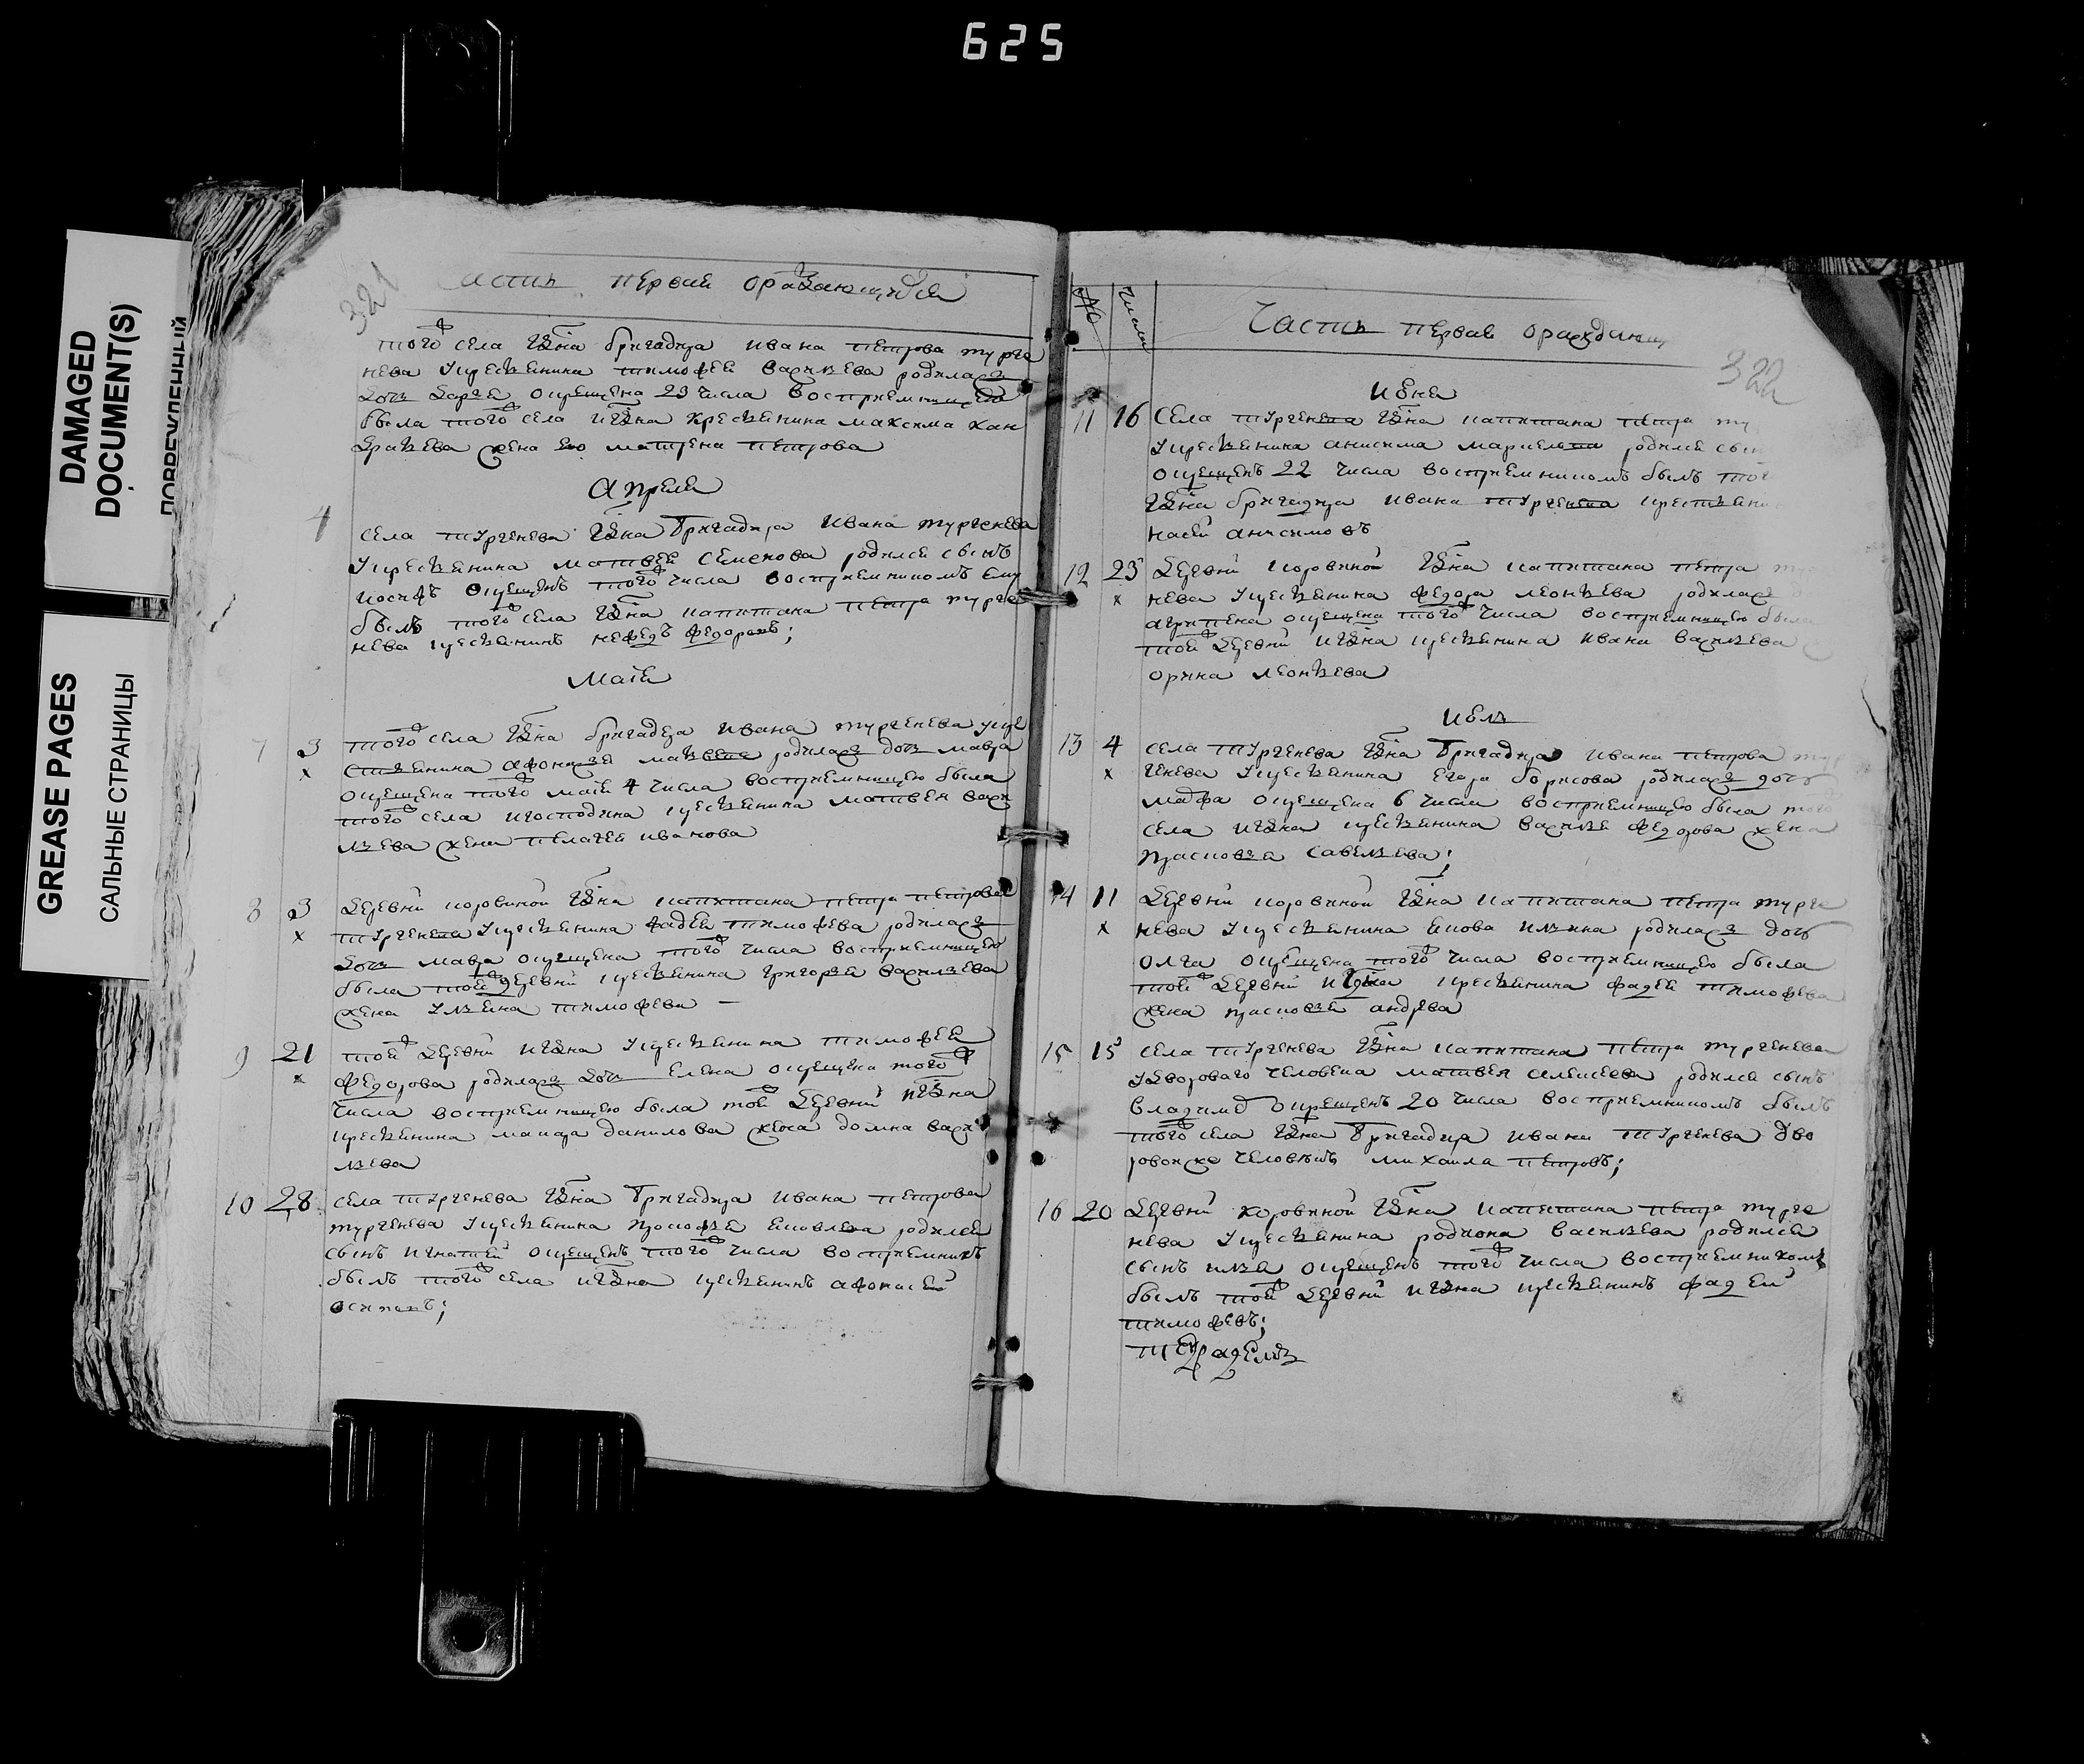 625
DAMAGED
DOCUMENT(S)
GREASE PAGES
САЛЬНЫЕ СТРАНИЦЫ
321
асть первая
того села гдна бригадира ивана петрова турге
нева укрестьянина тимофея васильева родилась
дочь дарья окрещена 23 числа восприемницею
была того села игдна крестьянина максима кан
дратьева жена ево матрена петрова
Апреля
4
села тургенева гдна бригадира ивана тургенева
укрестьянина матвея семенова родился сынъ
иосифъ окрещенъ того числа восприемникомъ ему
былъ того села гдна капитана петра турге
нева крестьянинъ нефедъ федоровъ;
Маия
7 3 того села гдна бригадира ивана тургенева укре
х стьянина афонасья родилась дочь мавра
окрещена того маия 4 числа восприемницею была
того села игосподина крестьянина матвея васи
льева жена пелагея иванова
8 3 деревни коровиной гдна капитана петра петрова
х тургенева укрестьянина фадея тимофева родилась
дочь мавра окрещена того числа восприемницею
была той деревни крестьянина григорья васильева
жена ульяна тимофева —
9 21 той деревни игдна укрестьянина тимофея
х федорова родилась дочь елена окрещена того
числа восприемницею была той деревни игдна
крестьянина макара данилова жена домна васи
льева
10 28 села тургенева гдна бригадира ивана петрова
тургенева укрестьянина яковлева родился
сынъ игнатей окрещенъ того числа восприемникъ
былъ того села игдна крестьянинъ афонасей
осиповъ;
№ Числа
Часть первая
322
Июня
11 16 Села тургенева гдна капитана петра ту
укрестьянина анисима родился сын
окрещенъ 22 числа восприемникомъ былъ того
гдна бригадира ивана тургенева крестьяни
анисимовъ
12 25 деревни коровиной гдна капитана петра ту
х нева укрестьянина федора леонтьева родилась
агрипена окрещена того числа восприемницею была
той деревни игдна крестьянина ивана васильева
орина леонтьева
Июль
13 4 села тургенева гдна бригадира ивана петрова тур
х генева укрестьянина егора борисова родилась дочь
марфа окрещена 6 числа восприемницею была того
села игдна крестьянина василья федорова жена
прасковья савельева;
14 11 деревни коровиной гдна капитана петра турге
х нева укрестьянина якова ильина родилась дочь
олга окрещена того числа восприемницею была
той деревни игдна крестьянина фадея тимофева
жена прасковья андрева
15 15 села тургенева гдна капитана петра тургенева
удворового человека матвея алексеева родился сынъ
владимер окрещенъ 20 числа восприемникомъ былъ
того села гдна бригадира ивана тургенева дво
ровой же человекъ михаила петровъ;
16 20 деревни коровиной гдна капитана петра турге
нева укрестьянина родиона васильева родился
сынъ илья окрещенъ того числа восприемникомъ
былъ той деревни игдна крестьянинъ фадей
тимофевъ;